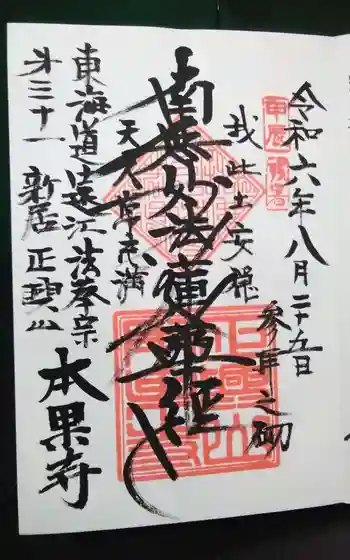 令和六年八月二十五日
参拝之砌
我此土安穏
南無妙法蓮華経
天人常充満
東海道遠江法華宗
第三十一 新居 正興山
本果寺
甲辰